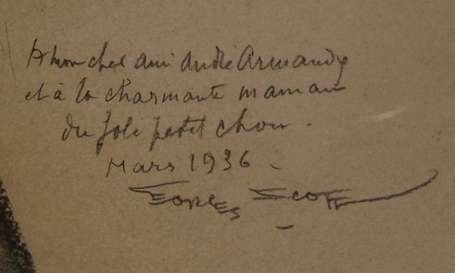 A mon cher ami André Armandy
et à la charmante maman
du joli petit chou.
Mars 1936
Georges Scott